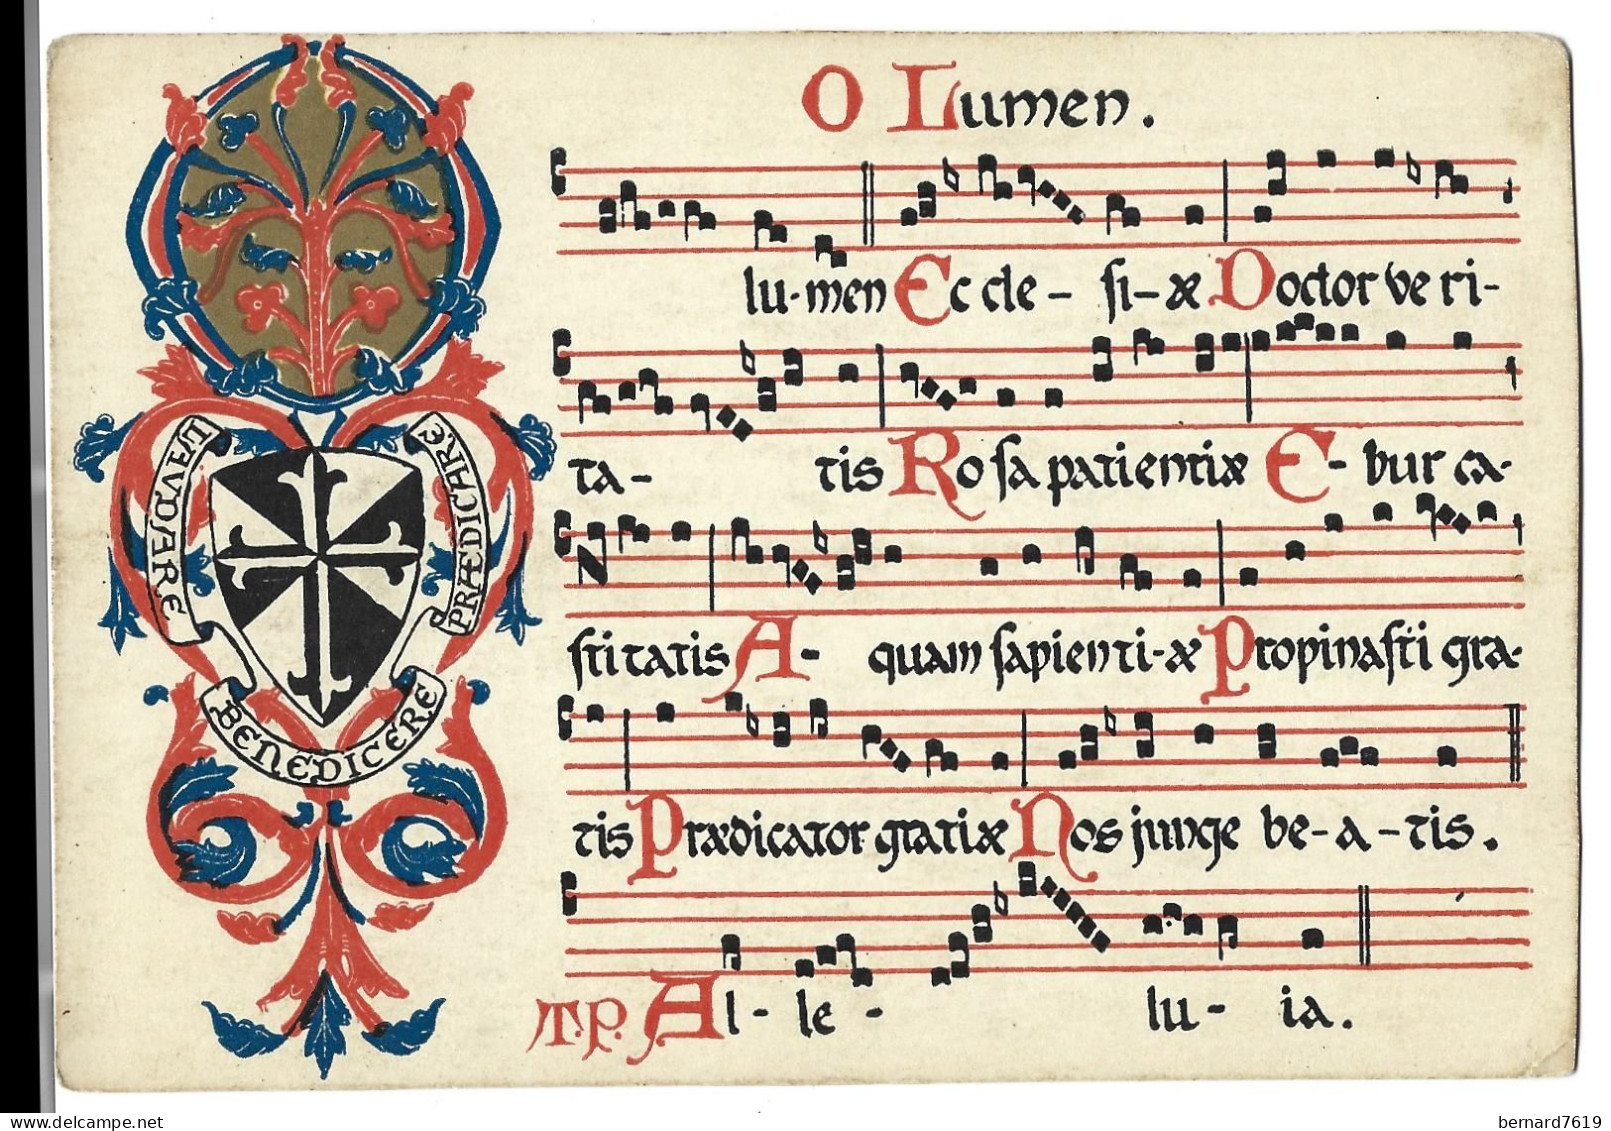 O Lumen.
lu-men Ec cle- si-æ Doctor ve ri-
ta- tis Ro sa patientiæ E- bur ca-
sti tatis A- quam sapien ti-æ Propinasti gra-
tis Prædicator gratiæ Nos junge be-a-tis.
T.P. Al- le- lu- ia.
LAUDARE
BENEDICERE
PRÆDICARE
bernard7619